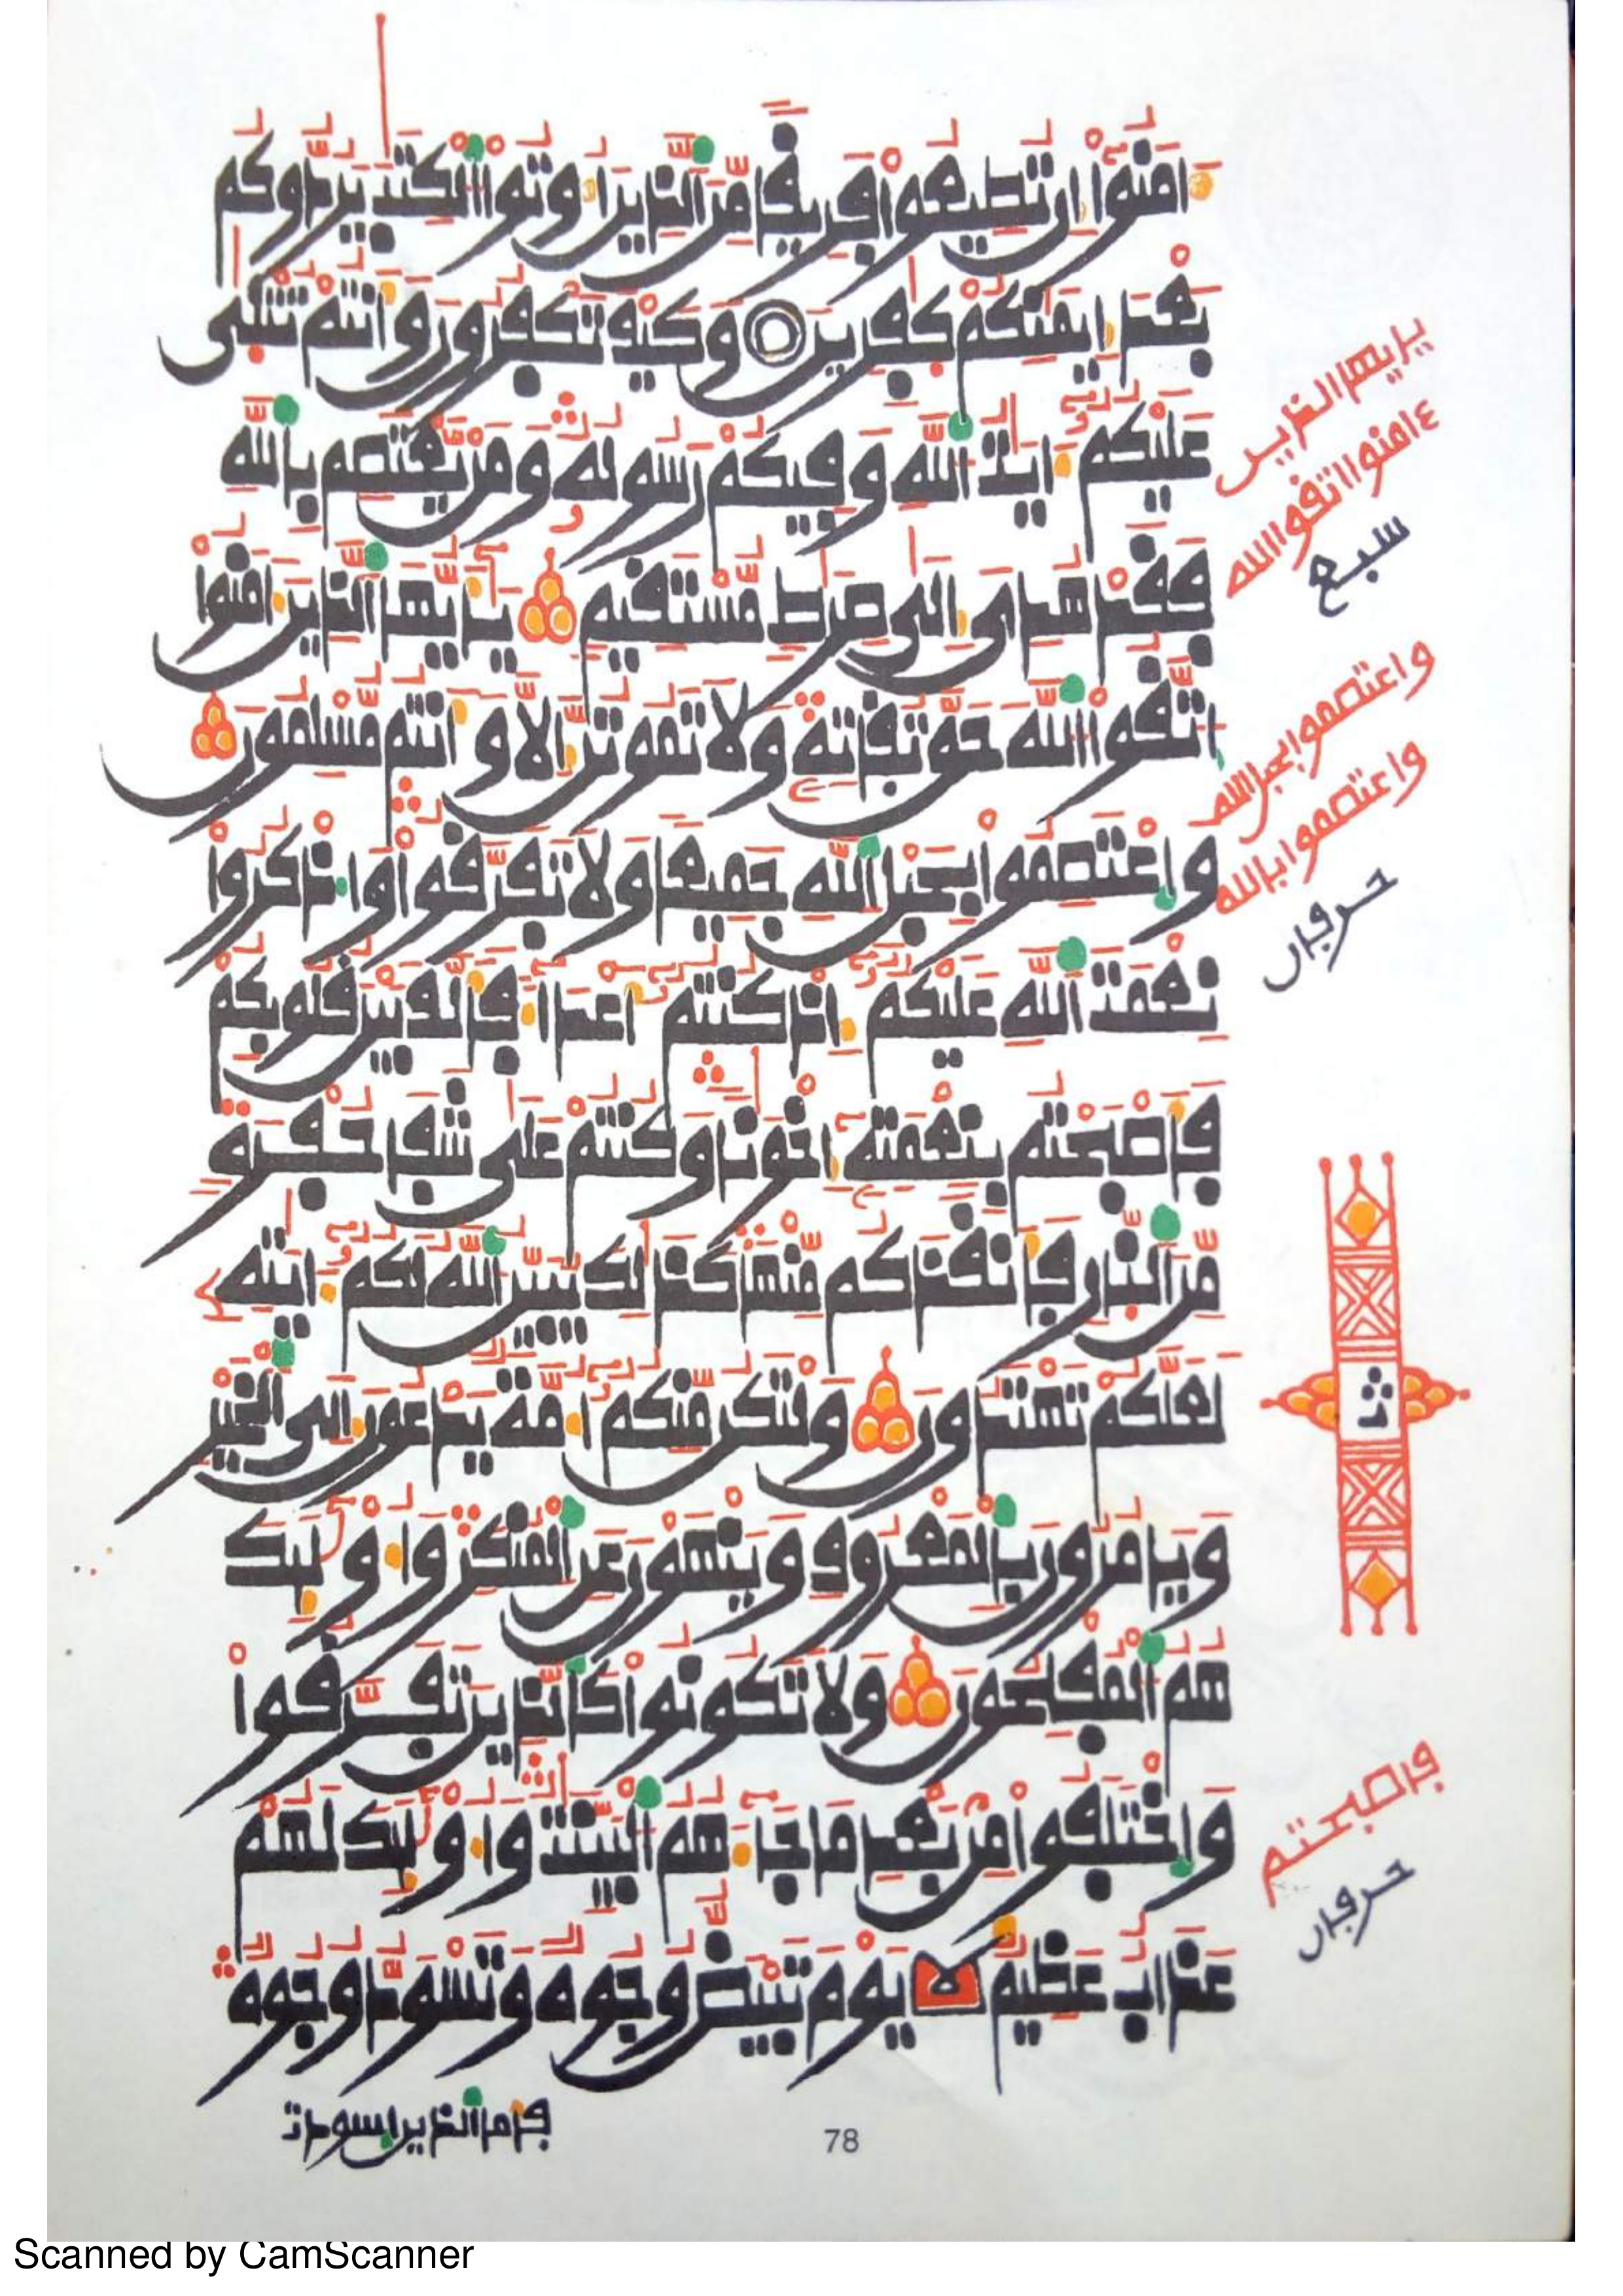 ءامنوا إن تطيعوا فريقا من الذين أوتوا الكتب يردوكم
بعد إيمنكم كفرين وكيف تكفرون وأنتم تتلى
عليكم ءايت الله وفيكم رسوله ومن يعتصم بالله
فقد هدى إلى صرط مستقيم يأيها الذين ءامنوا
اتقوا الله حق تقاته ولا تموتن إلا وأنتم مسلمون
واعتصموا بحبل الله جميعا ولا تفرقوا واذكروا
نعمت الله عليكم إذ كنتم أعداء فألف بين قلوبكم
فأصبحتم بنعمته إخونا وكنتم على شفا حفرة
من النار فأنقذكم منها كذلك يبين الله لكم ءايته
لعلكم تهتدون ولتكن منكم أمة يدعون إلى الخير
ويامرون بالمعروف وينهون عن المنكر وأولئك
هم المفلحون ولا تكونوا كالذين تفرقوا
واختلفوا من بعد ما جاءهم البينت وأولئك لهم
عذاب عظيم يوم تبيض وجوه وتسود وجوه
فأما الذين اسودت
78
يأيها الذين
ءامنوا اتقوا الله
سبع
واعتصموا بحبل الله
واعتصموا بالله
حرفان
ث
فأصبحتم
حرفان
Scanned by CamScanner